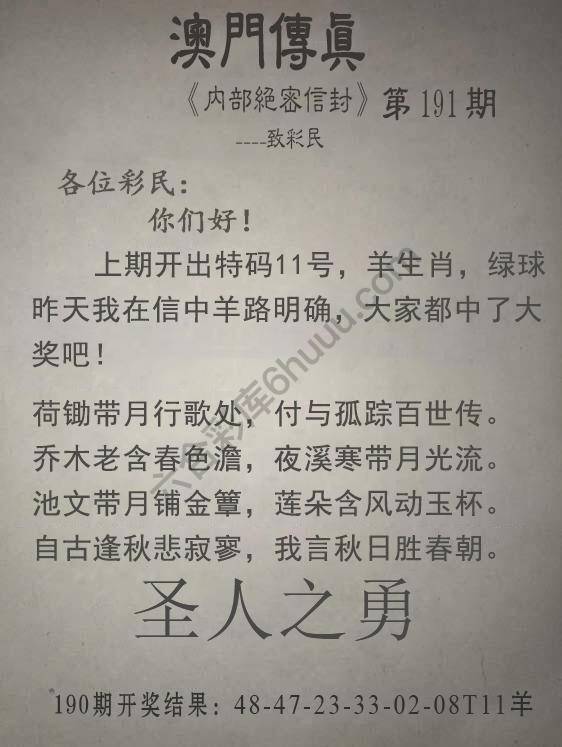 澳門傳眞
《内部絕密信封》第191期
----致彩民
各位彩民：
你们好！
上期开出特码11号，羊生肖，绿球
昨天我在信中羊路明确，大家都中了大
奖吧！
荷锄带月行歌处，付与孤踪百世传。
乔木老含春色澹，夜溪寒带月光流。
池文带月铺金簟，莲朵含风动玉杯。
自古逢秋悲寂寥，我言秋日胜春朝。
圣人之勇
190期开奖结果：48-47-23-33-02-08T11羊
六合彩库6huuu.com